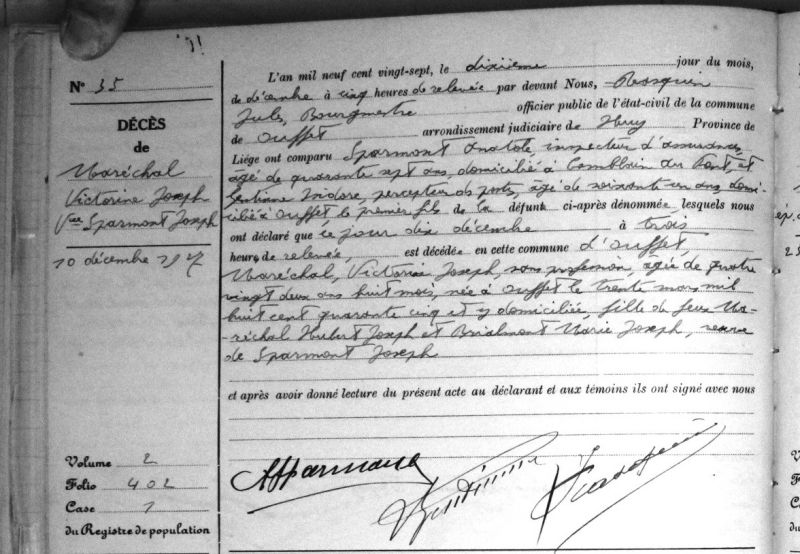 N° 35
DÉCÈS
de
Maréchal
Victorine Joseph
Vve Sparmont Joseph
10 décembre 1927
Volume 2
Folio 402
Case 1
du Registre de population
L'an mil neuf cent vingt-sept, le dixième jour du mois,
de décembre à cinq heures de relevée par devant Nous, Rosquin
Jules, Bourgmestre officier public de l'état-civil de la commune
de Ouffet arrondissement judiciaire de Huy Province de
Liége ont comparu Sparmont Anatole inspecteur d'assurances,
âgé de quarante sept ans, domicilié à Comblain au Pont, et
Isidore, percepteur des postes, âgé de soixante un ans, domi-
cilié à Ouffet le premier fils de la défunte ci-après dénommée lesquels nous
ont déclaré que ce jour dix décembre à trois
heures de relevée, est décédée en cette commune d'Ouffet,
Maréchal, Victorine Joseph, sans profession, âgée de quatre
vingt deux ans huit mois, née à Ouffet le trente mars mil
huit cent quarante cinq et y domiciliée, fille de feux Ma-
-réchal Hubert Joseph et Brialmont Marie Joseph, veuve
de Sparmont Joseph
et après avoir donné lecture du présent acte au déclarant et aux témoins ils ont signé avec nous
ASparmont